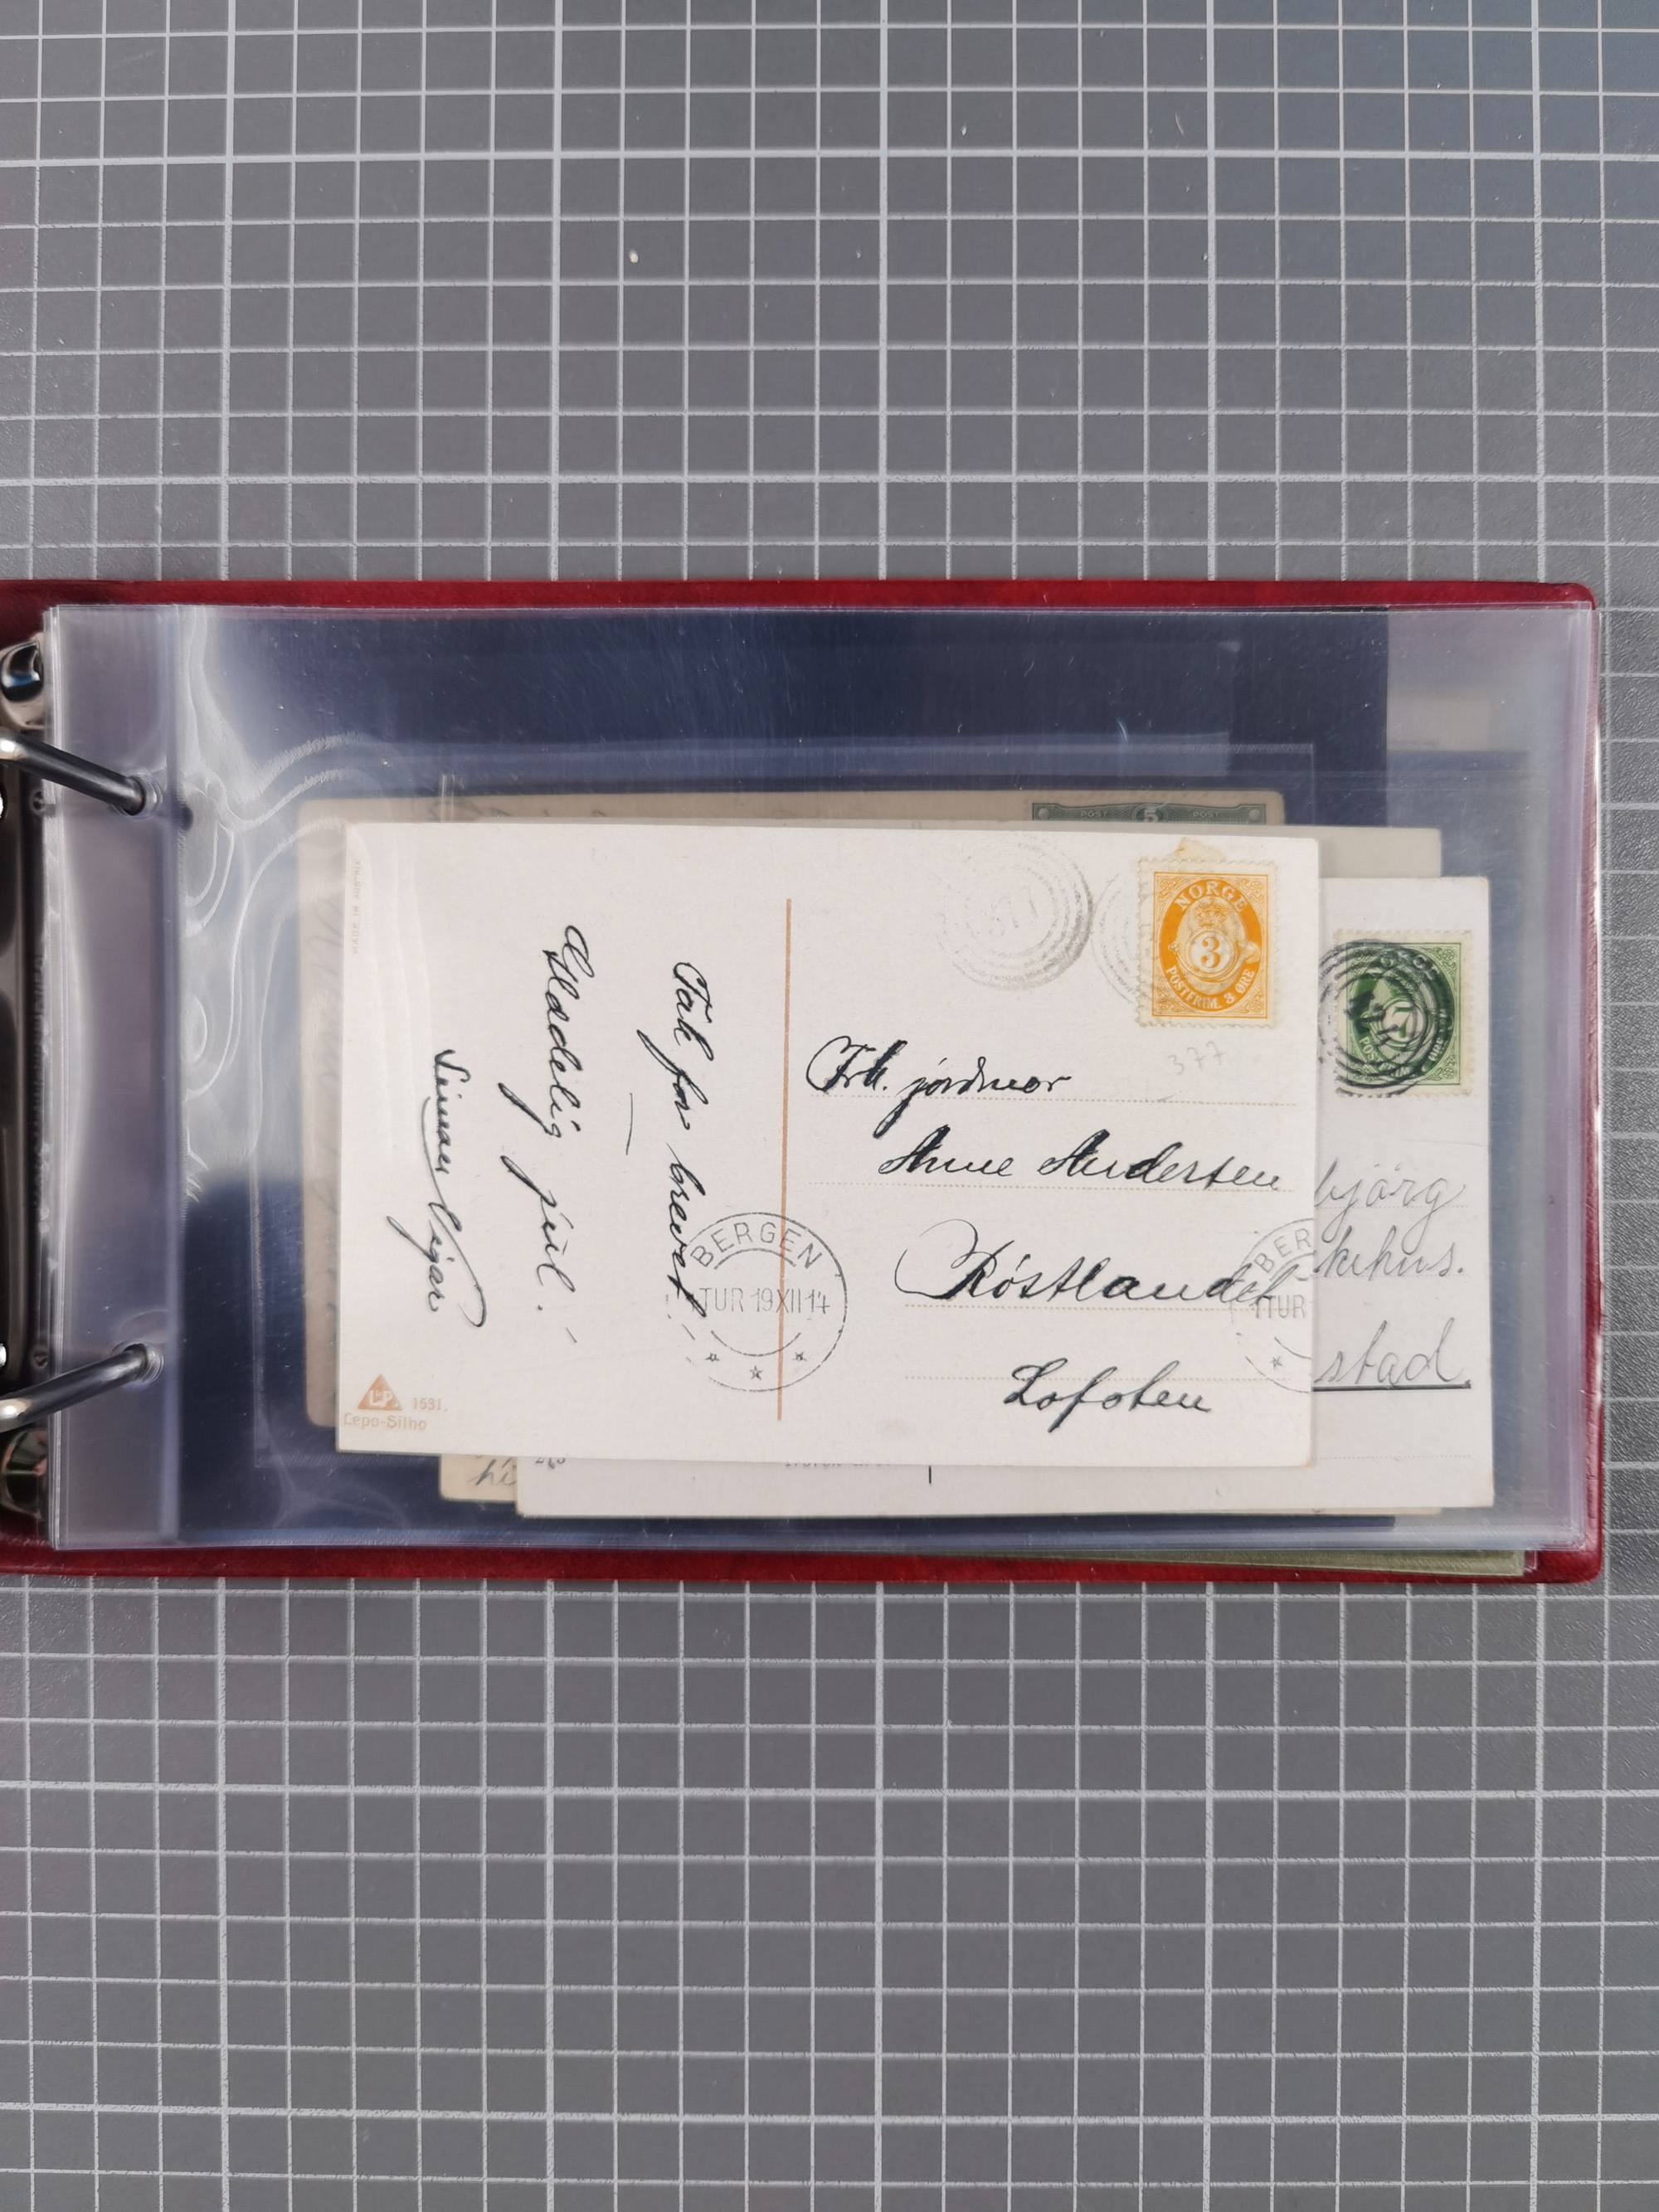 POST 5 POST
MADE IN AUSTRIA
377
NORGE
3
POSTFRIM. 3 ØRE
377
Frk. jordmor
Anne Andersen
Röstlandet
Lofoten
Tak for brevet!
Glædelig jul!
BERGEN
TUR 19 XII 14
L.P. 1591.
Lepo-Silho
BER
TTUR
5
POSTFRIM. ØRE
bjørg
kehus.
stad.
hi